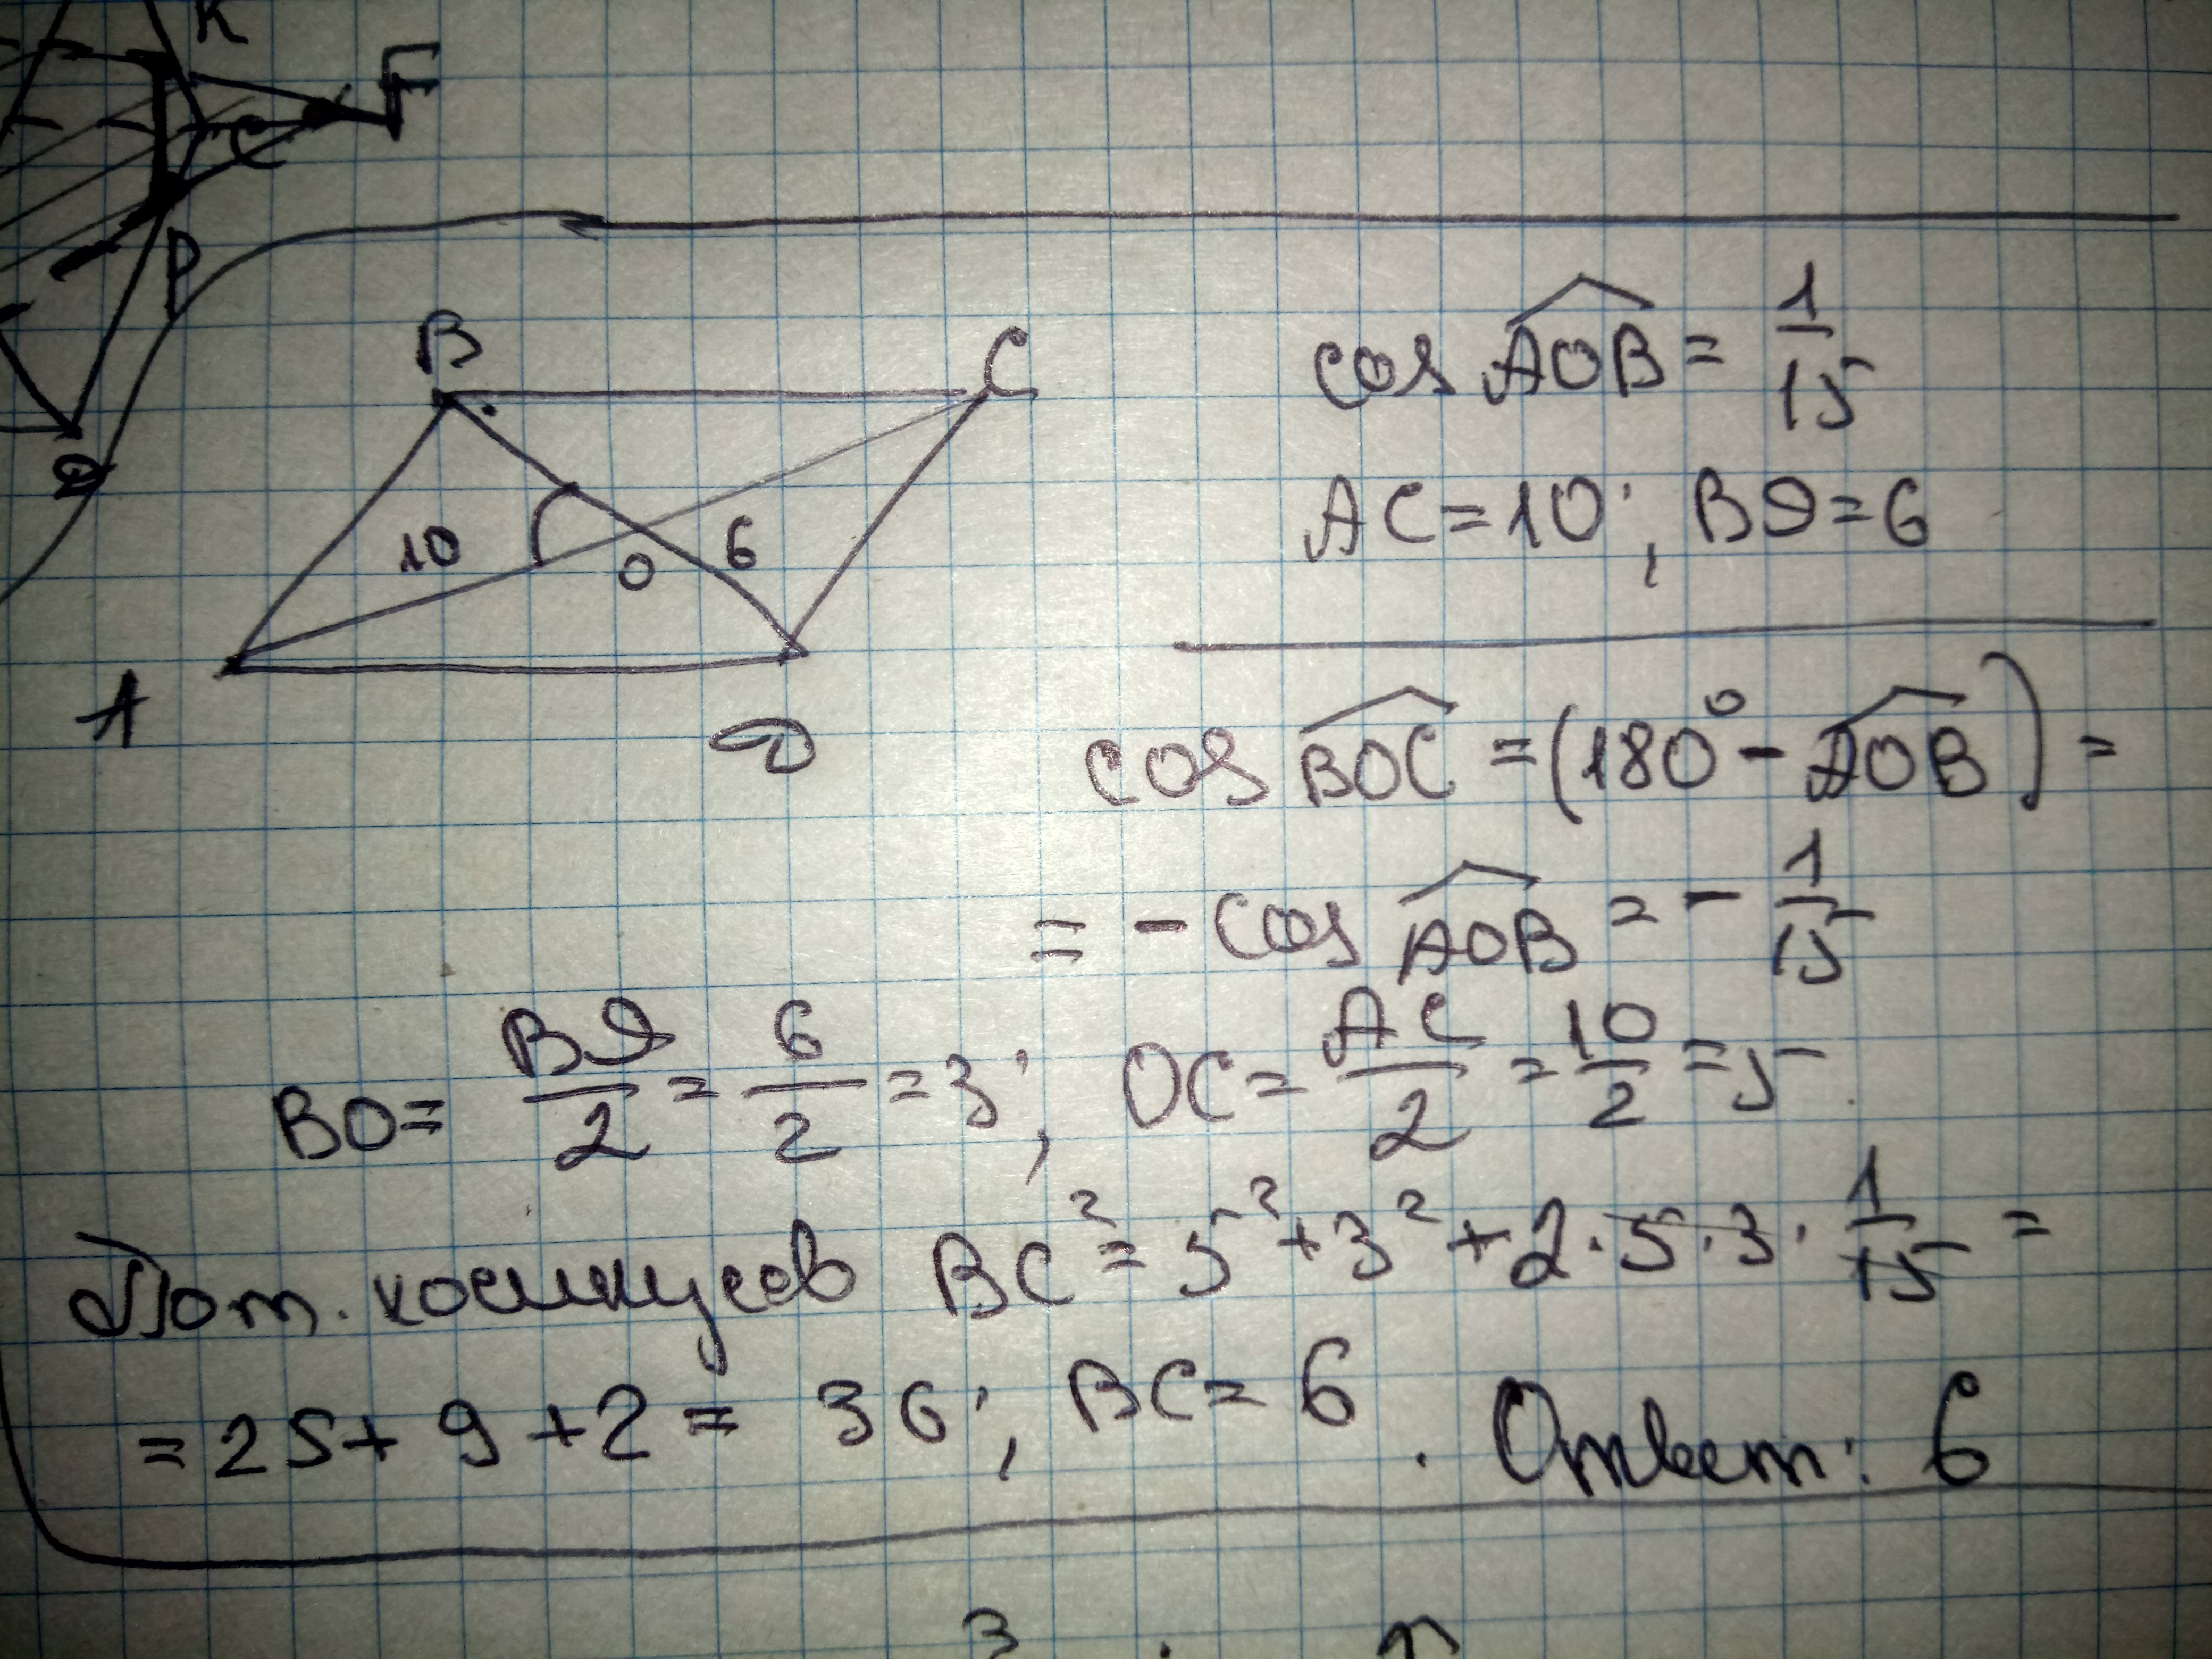 K
F
C
P
D
B
C
10
6
O
A
D
cos AOB = 1/15
AC = 10; BD = 6
cos BOC = (180° - AOB) =
= - cos AOB = - 1/15
BO = BD/2 = 6/2 = 3; OC = AC/2 = 10/2 = 5
По т. косинусов BC² = 5² + 3² + 2·5·3·1/15 =
= 25 + 9 + 2 = 36; BC = 6. Ответ: 6